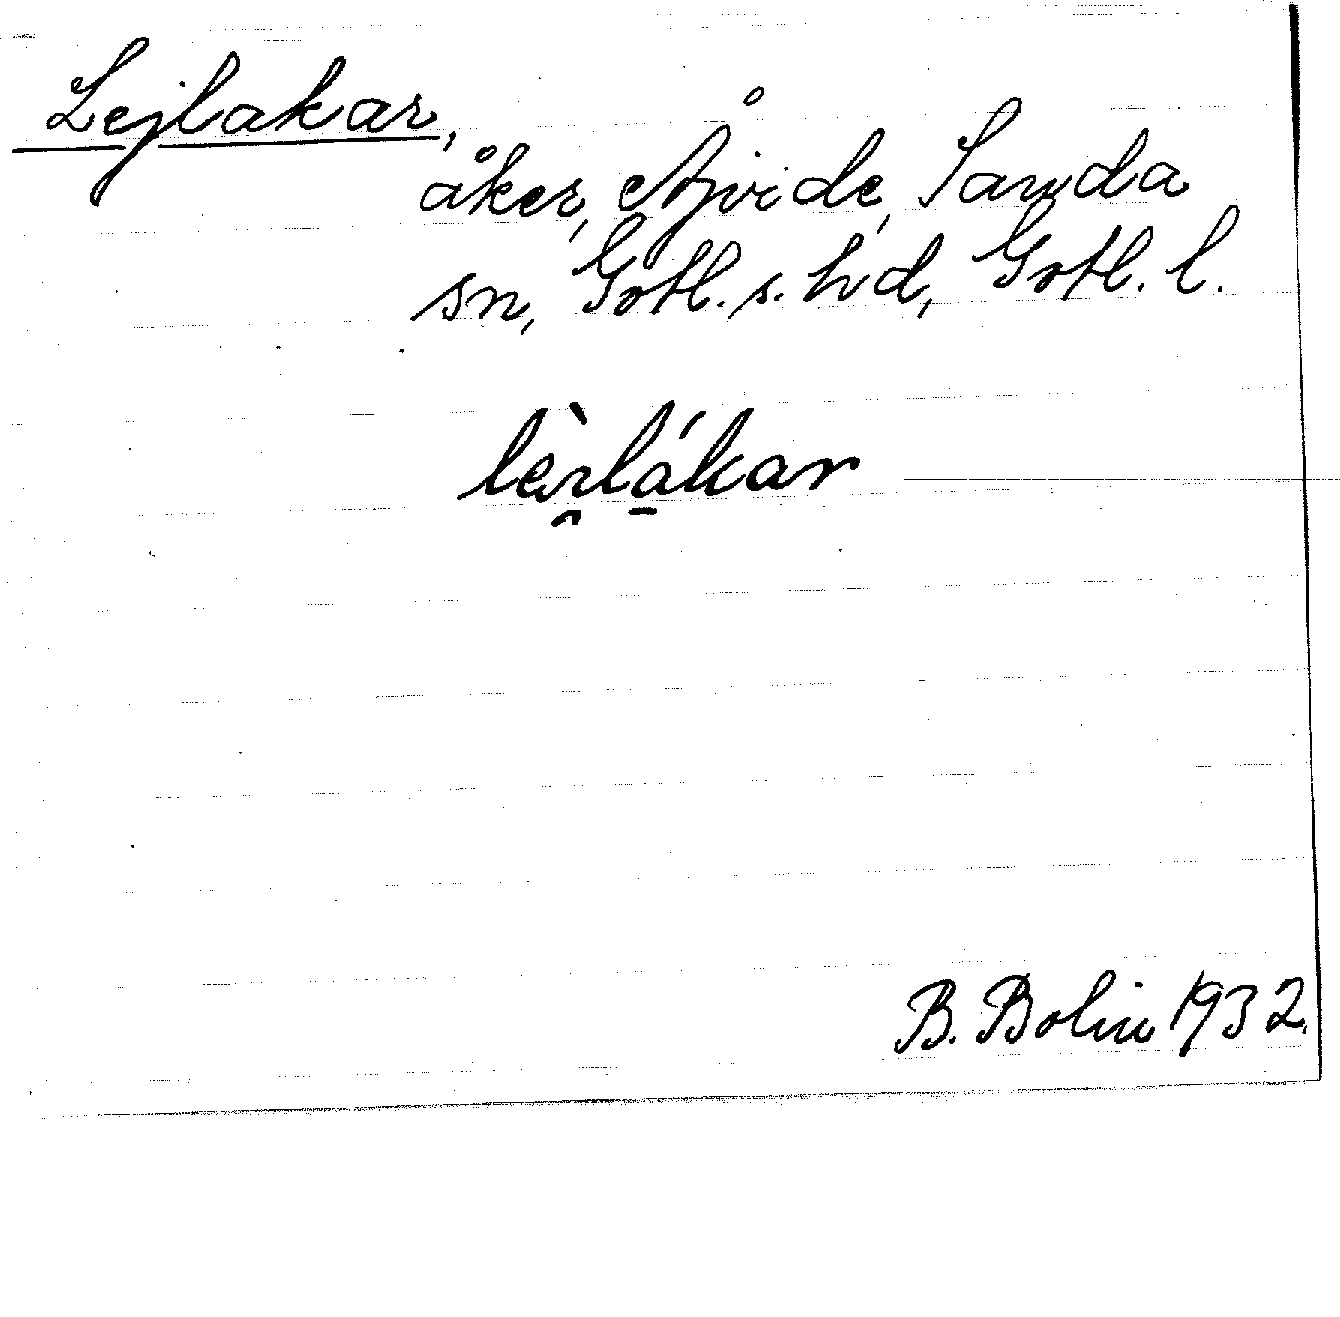 Lejlakar,
åker, Åjvide, Sanda
sn, Gotl. s. hd, Gotl. l.
B. Bolin 1932.